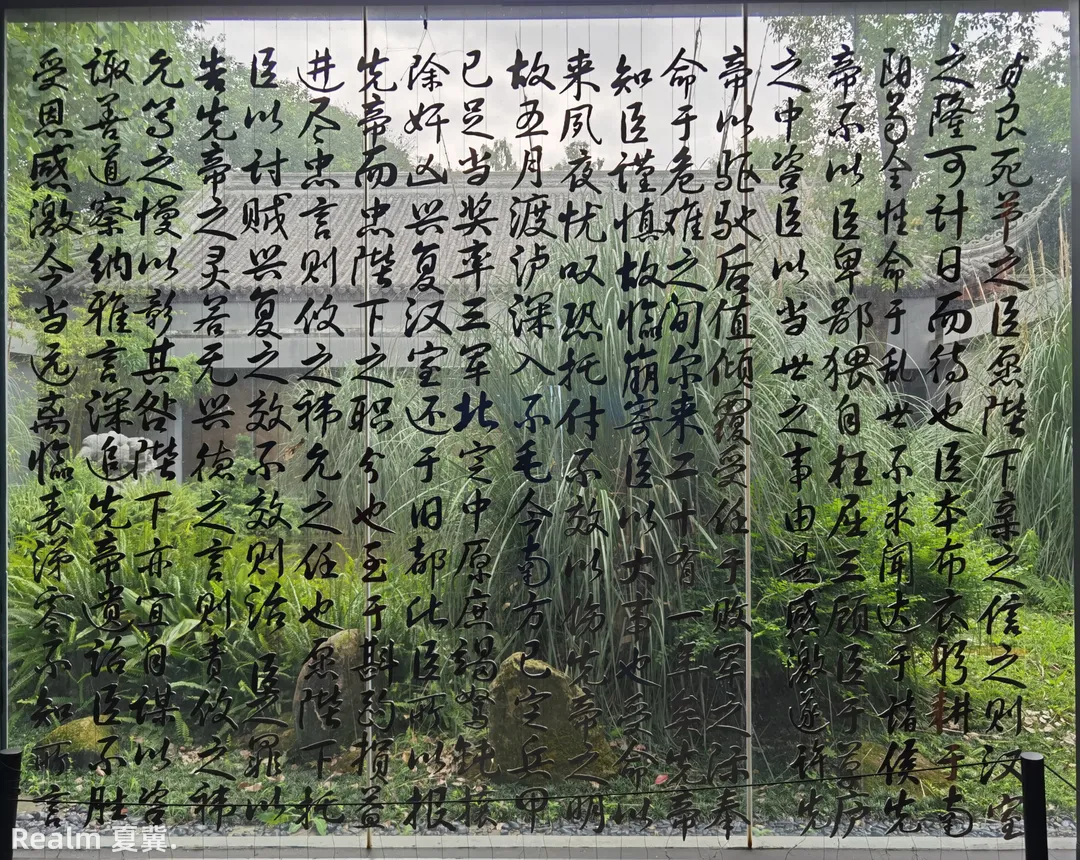 贞良死节之臣愿陛下亲之信之则汉室
之隆可计日而待也臣本布衣躬耕于南
阳苟全性命于乱世不求闻达于诸侯先
帝不以臣卑鄙猥自枉屈三顾臣于草庐
之中咨臣以当世之事由是感激遂许先
帝以驱驰后值倾覆受任于败军之际奉
命于危难之间尔来二十有一年矣先帝
知臣谨慎故临崩寄臣以大事也受命以
来夙夜忧叹恐托付不效以伤先帝之明
故五月渡泸深入不毛今南方已定兵甲
已足当奖率三军北定中原庶竭驽钝攘
除奸凶兴复汉室还于旧都此臣所以报
先帝而忠陛下之职分也至于斟酌损益
进尽忠言则攸之祎允之任也愿陛下托
臣以讨贼兴复之效不效则治臣之罪以
告先帝之灵若无兴德之言则责攸之祎
允等之慢以彰其咎陛下亦宜自谋以咨
诹善道察纳雅言深追先帝遗诏臣不胜
受恩感激今当远离临表涕零不知所言
Realm 夏冀.